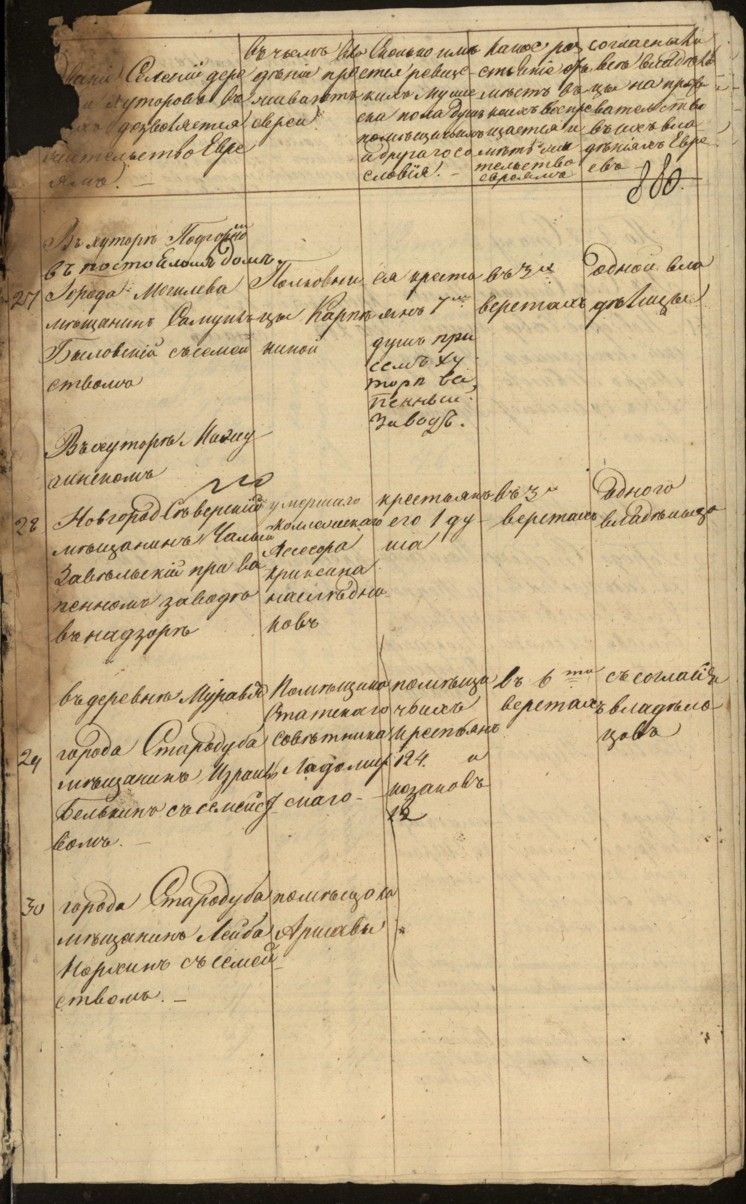 вание Селений дере
хуторовъ въ
дозволяется
жительство Евре
ямъ. —
въ чьемъ вла
дѣніи про
живаютъ
евреи
Сколько имъ
ется ревиж
скихъ муже
ска пола душъ
помѣщичьихъ
и другаго со
словія. —
какое раз
стояніе отъ
мѣстъ въ
коихъ воспре
щается
жительство
евреямъ
согласны ли
всѣ владѣль
цы на про
въ ихъ вла
дѣніяхъ Евре
евъ —
880.
Въ хуторѣ
въ постояломъ домѣ
27
города Могилева
мѣщанинъ Самуилъ
Быловскій съ семей
ствомъ
Полковни
цы Карпѣ
киной
ея кресть
янъ 7
душъ при
семъ ху
торѣ ва
пенный
заводъ.
въ 3х
верстахъ
одной вла
дѣлицы
Въ хуторѣ
28
Новгородсѣверскій
мѣщанинъ
при ва
пенномъ заводѣ
въ надзорѣ
умершаго
коллежскаго
Асесора
наслѣдни
ковъ
крестьянъ
его 1 ду
ша
въ 3х
верстахъ
одного
владѣльца
въ деревнѣ
29
города Стародуба
мѣщанинъ Израиль
Белькинъ съ семейст
вомъ. —
Помѣщика
Статскаго
совѣтника
Ладомир
скаго —
помѣщи
чьихъ
крестьянъ
124. и
козаковъ
12
въ 6ти
верстахъ
съ согласія
владѣль
цовъ
30
города Стародуба
мѣщанинъ Лейба
съ семей
ствомъ. —
помѣщика